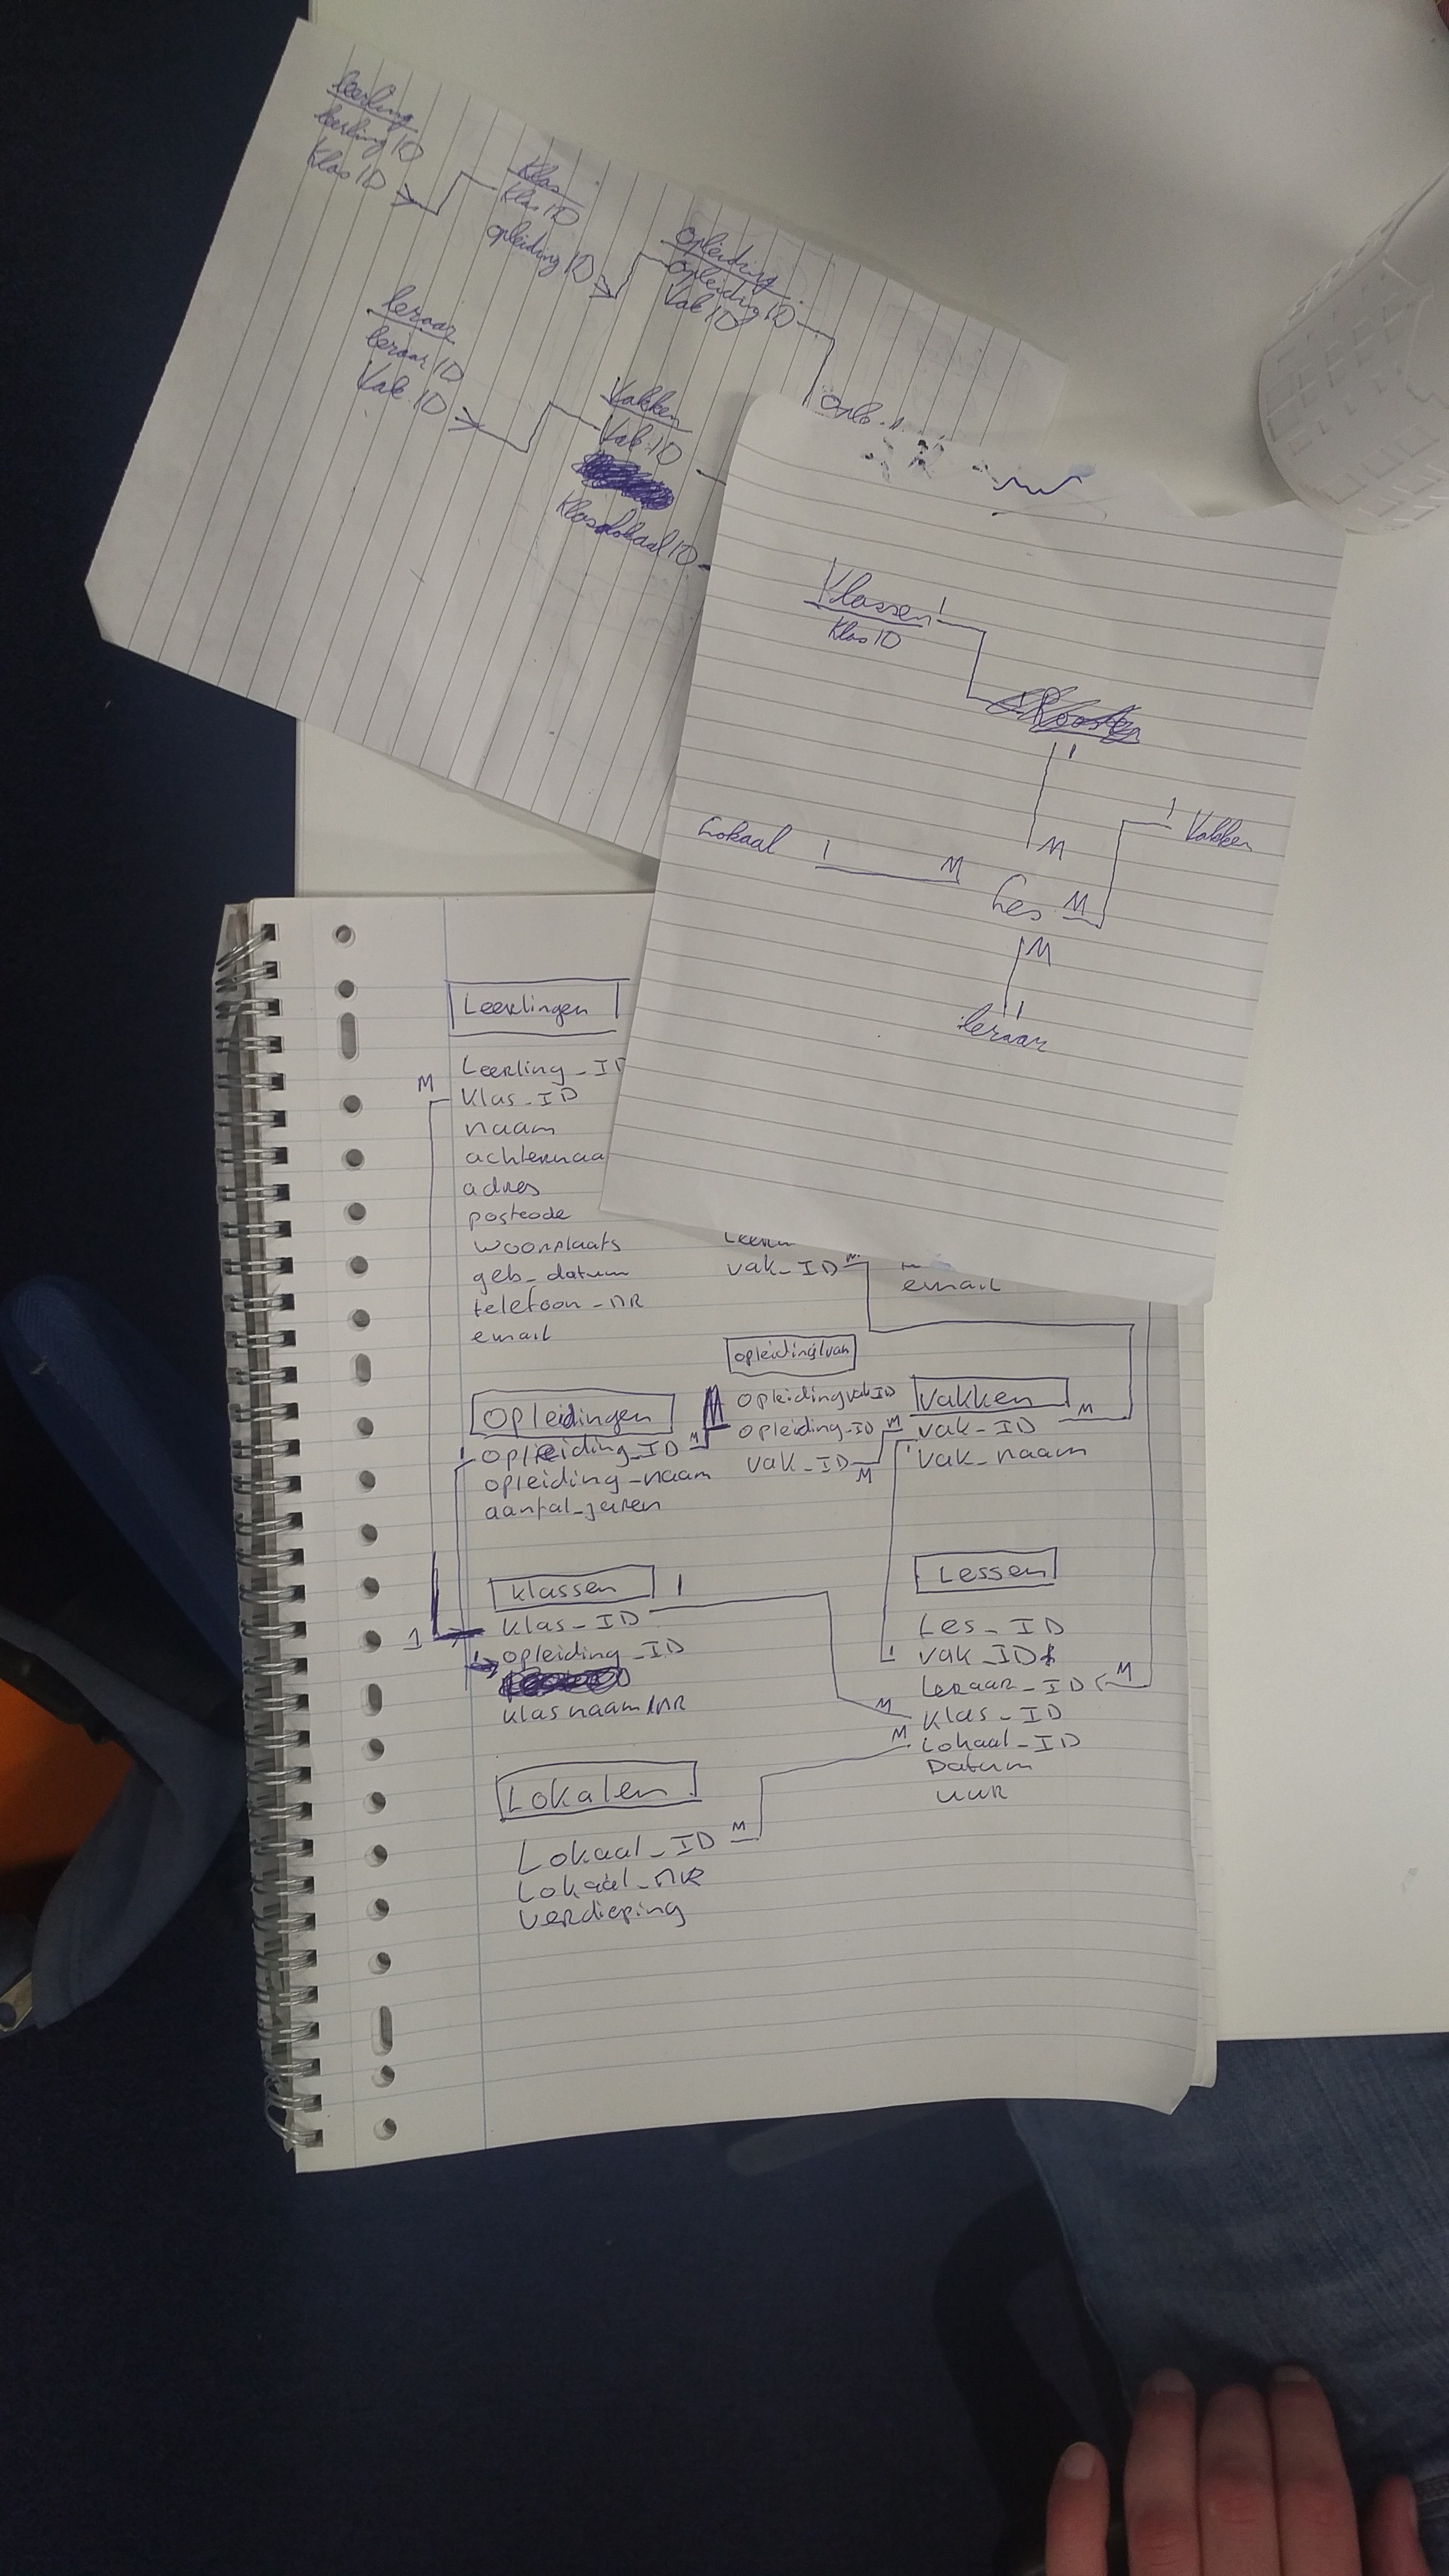 leerling
leerling ID
Klas ID
Klas
Klas ID
opleiding ID
Opleiding
Opleiding ID
Vak ID
leraar
leraar ID
Vak ID
Vakken
Vak ID
Klaslokaal ID
Klassen 1
Klas ID
Rooster
1
M
Lokaal 1 M
Les M
1 Vakken
M
1
leraar
Leerlingen
Leerling_ID
M Klas_ID
naam
achternaa
adres
postcode
woonplaats
geb_datum
telefoon_nR
email
vak_ID M
email
opleiding/vak
Opleidingen
1 opleiding_ID M
opleiding_naam
aantal_jaren
M opleidingvakID
opleiding_ID
vak_ID M
Vakken
M vak_ID M
1 vak_naam
Klassen 1
1 Klas_ID
1 opleiding_ID
klasnaam/nR
Lessen
Les_ID
1 vak_ID
leraar_ID M
M Klas_ID
M Lokaal_ID
Datum
uur
Lokalen
Lokaal_ID M
Lokaal_nR
verdieping